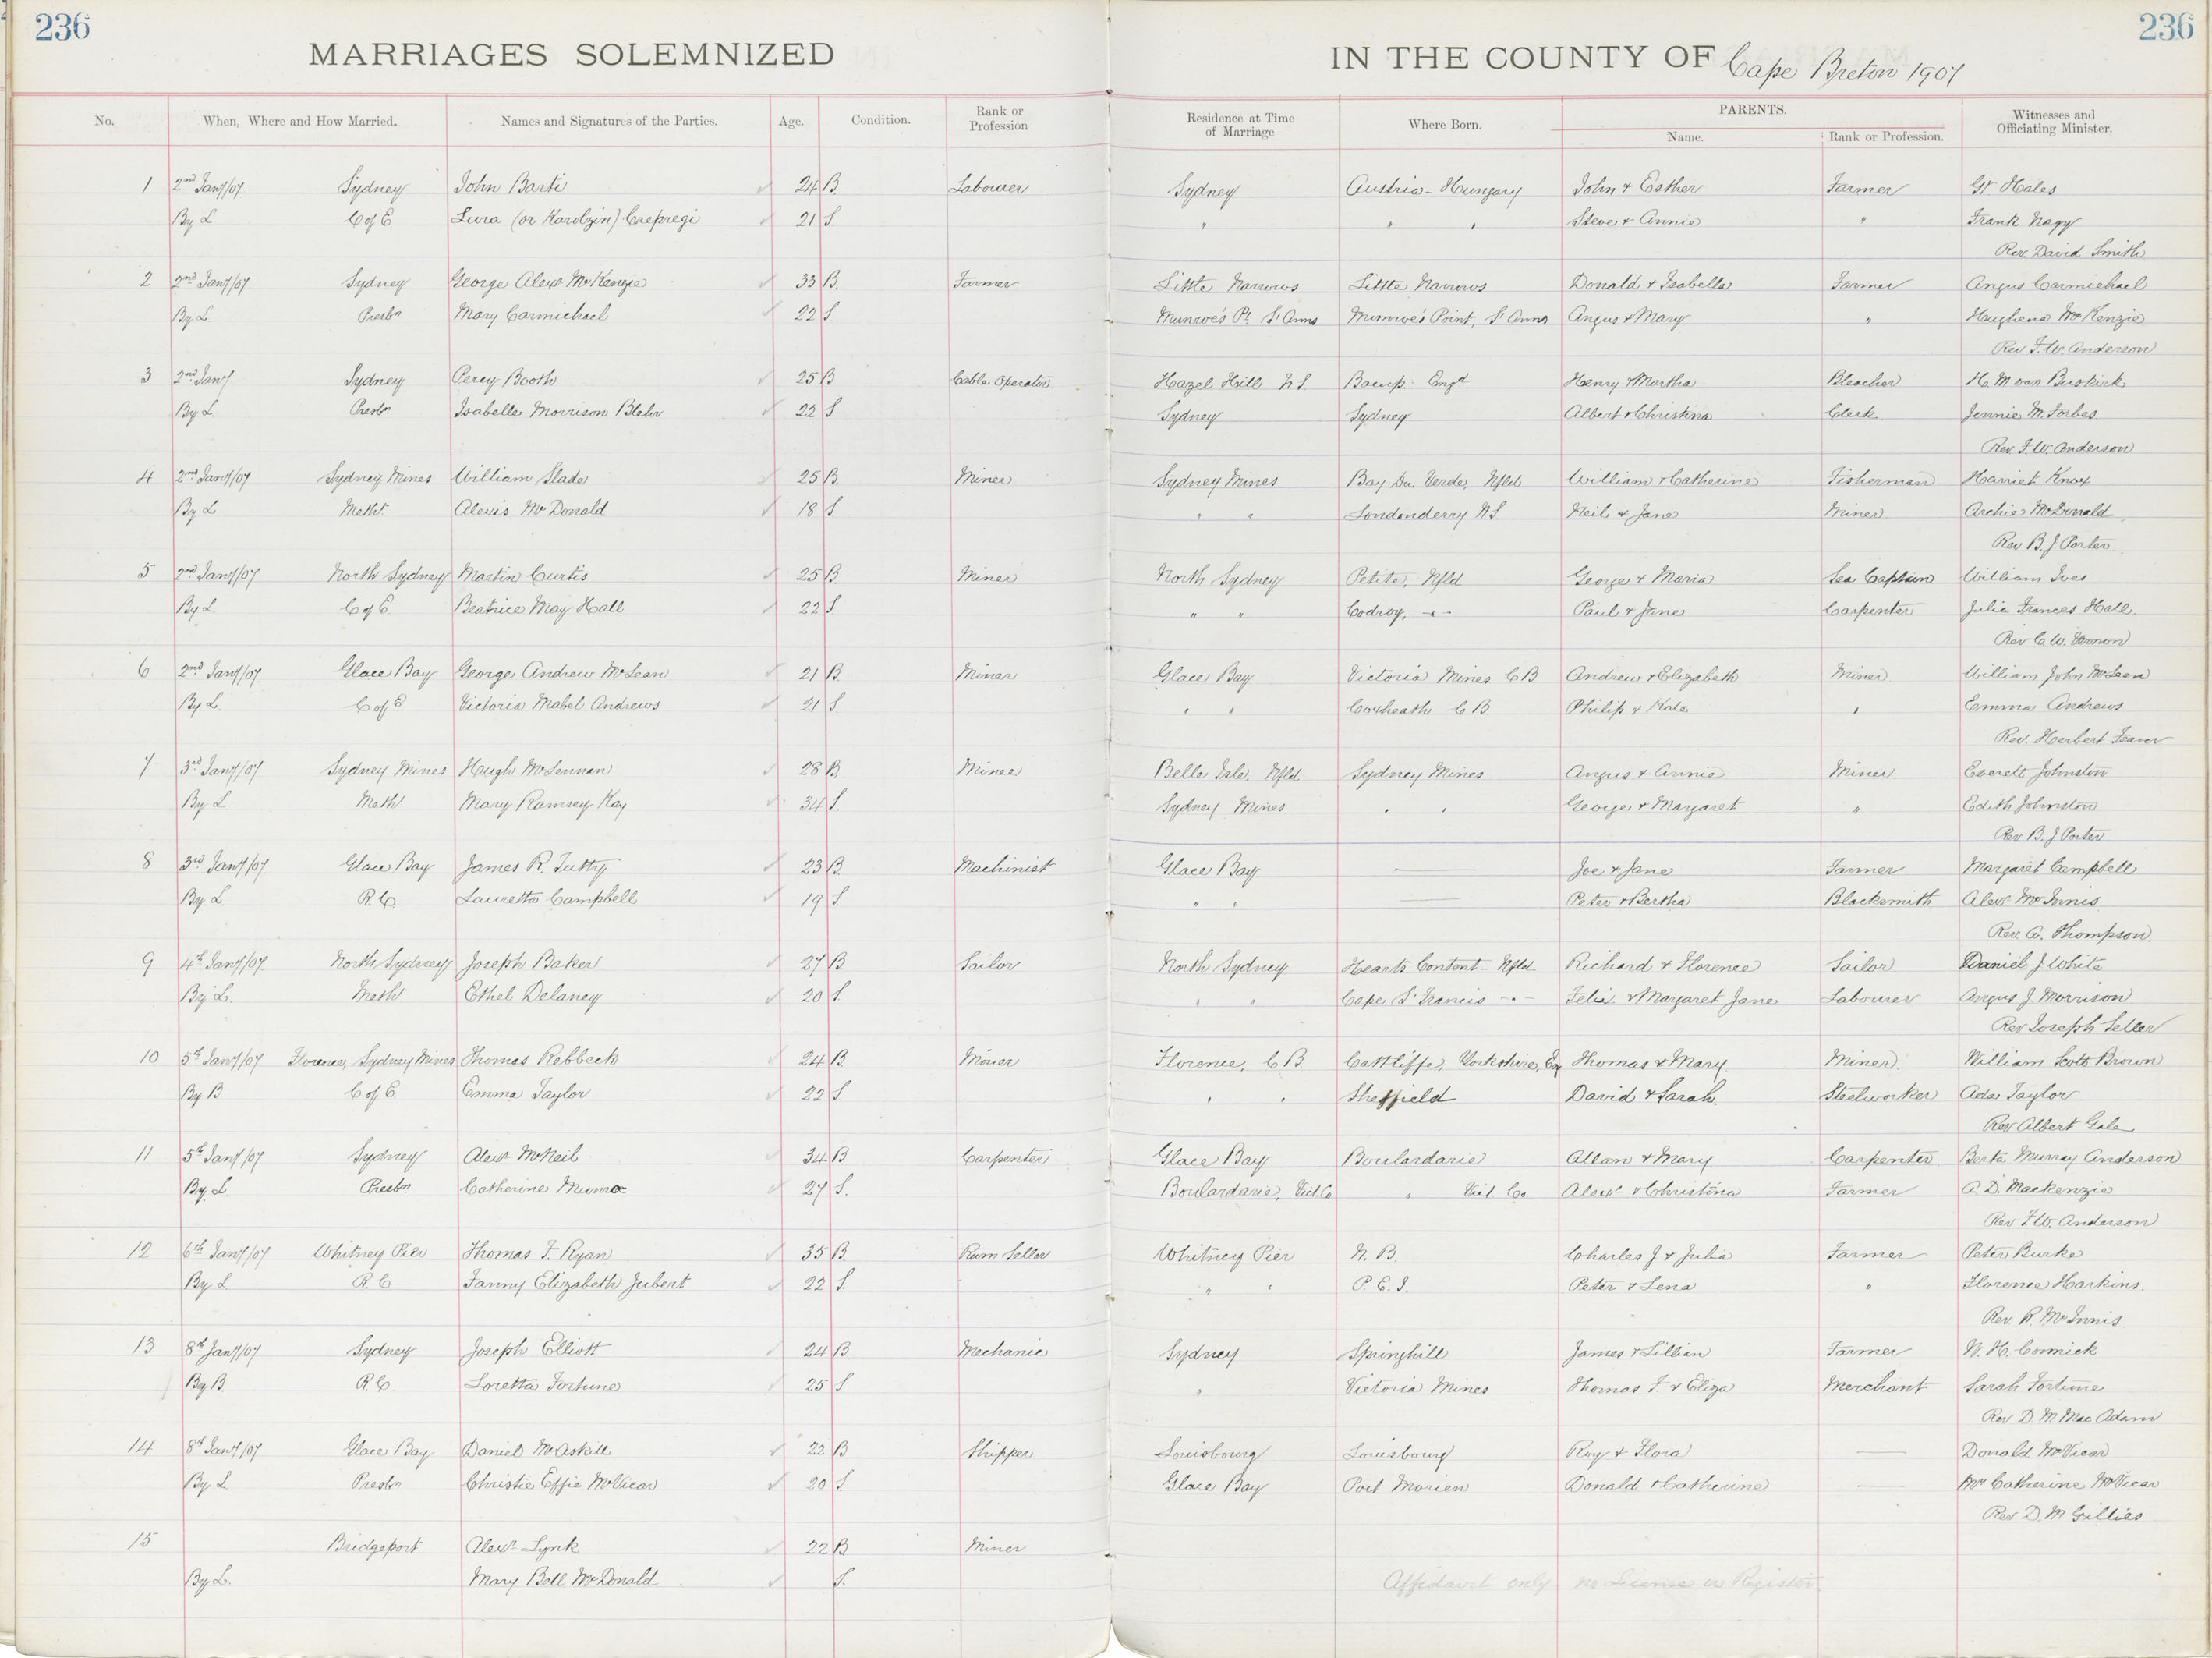 236
236
MARRIAGES SOLEMNIZED IN THE COUNTY OF Cape Breton 1907
No. When, Where and How Married. Names and Signatures of the Parties. Age. Condition. Rank or Profession Residence at Time of Marriage Where Born. PARENTS. Name. Rank or Profession. Witnesses and Officiating Minister.
1 2nd Jany/07. Sydney John Barti 24 B. Labourer Sydney Austria-Hungary John & Esther Farmer Hales
By L C of E (or Karolzin) 21 S. " " " Steve & Annie " Frank Nagy
Rev. David Smith
2 2nd Jany/07 Sydney George Alexr McKenzie 33 B. Farmer Little Narrows Little Narrows Donald & Isabella Farmer Angus Carmichael
By L Presbn Mary Carmichael 22 S Munroe's Pt St Anns Munroe's Point, St Anns Angus & Mary " Hughena McKenzie
Rev F. W. Anderson
3 2nd Jany Sydney Percy Booth 25 B Cable Operator Hazel Hill N S Bacup Engd Henry & Martha Bleacher H. M van Buskirk
By L. Presbn Isabelle Morrison 22 S Sydney Sydney Albert & Christina Clerk Jennie M. Forbes
Rev F. W. Anderson
4 2nd Jany/07 Sydney Mines William Slade 25 B. Miner Sydney Mines Bay Du Verde, Nfld William & Catherine Fisherman Harriet Knox
By L Metht Alexis McDonald 18 S " " Londonderry N S Neil & Jane Miner Archie McDonald
Rev B. J Porter
5 2nd Jany/07 North Sydney Martin Curtis 25 B. Miner North Sydney Petite, Nfld George & Maria Sea Captain William Ives
By L C of E. Beatrice May Hall 22 S " " Codroy, -"- Paul & Jane Carpenter Julia Frances Hall
Rev C. W. Vernon
6 2nd Jany/07 Glace Bay George Andrew McLean 21 B. Miner Glace Bay Victoria Mines C B Andrew & Elizabeth Miner William John McLean
By L. C of E Victoria Mabel Andrews 21 S. " " Coxheath C B Philip & Kate " Emma Andrews
Rev. Herbert
7 3rd Jany/07 Sydney Mines Hugh McLennan 28 B. Miner Belle Isle, Nfld Sydney Mines Angus & Annie Miner Everett Johnston
By L Meth Mary Ramsey Kay 34 S. Sydney Mines " " George & Margaret " Edith Johnston
Rev B. J Porter
8 3rd Jany/07. Glace Bay James R. Tutty 23 B. Machinist Glace Bay — Joe & Jane Farmer Margaret Campbell
By L R. C. Lauretta Campbell 19 S " " — Peter & Bertha Blacksmith Alexr McInnis
Rev. A. Thompson
9 4th Jany/07. North Sydney Joseph Baker 27 B. Sailor North Sydney Hearts Content Nfld. Richard & Florence Sailor Daniel J White
By L. Meth Ethel Delaney 20 S. " " Cape St Francis -"- Felix & Margaret Jane Labourer Angus J. Morrison
Rev Joseph Seller
10 5th Jany/07 Florence, Sydney Mines Thomas Rebbeck 24 B. Miner Florence, C B. Yorkshire, Eng Thomas & Mary Miner William Scott Brown
By B C of E. Emma Taylor 22 S " " Sheffield David & Sarah Steelworker Ada Taylor
Rev Albert Gale
11 5th Jany/07 Sydney Alexr McNeil 34 B Carpenter Glace Bay Boulardarie Allan & Mary Carpenter Berta Murray Anderson
By. L. Presbn Catherine Munroe 27 S. Boulardarie, Vict. Co " Vict. Co Alexr & Christina Farmer A. D. Mackenzie
Rev F. W. Anderson
12 6th Jany/07 Whitney Pier Thomas F. Ryan 35 B. Rum Seller Whitney Pier N. B. Charles J & Julia Farmer Peter Burke
By L R. C Fanny Elizabeth Jubert 22 S. " " P. E. I. Peter & Lena " Florence Harkins
Rev R. McInnis
13 8th Jany/07 Sydney Joseph Elliott 24 B Mechanic Sydney Springhill James & Lillian Farmer N. H. Cormick
By B. R. C. Loretta Fortune 25 S " Victoria Mines Thomas F. & Eliza Merchant Sarah Fortune
Rev D. M. MacAdam
14 8th Jany/07 Glace Bay Daniel McAskill 22 B Shipper Louisbourg Louisbourg Roy & Flora — Donald McVicar
By L. Presbn Christie Effie McVicar 20 S Glace Bay Port Morien Donald & Catherine — Mrs Catherine McVicar
Rev D. M Gillies
15 Bridgeport Alexr Lynk 22 B Miner
By L. Mary Bell McDonald S. Affidavit only no License or Register